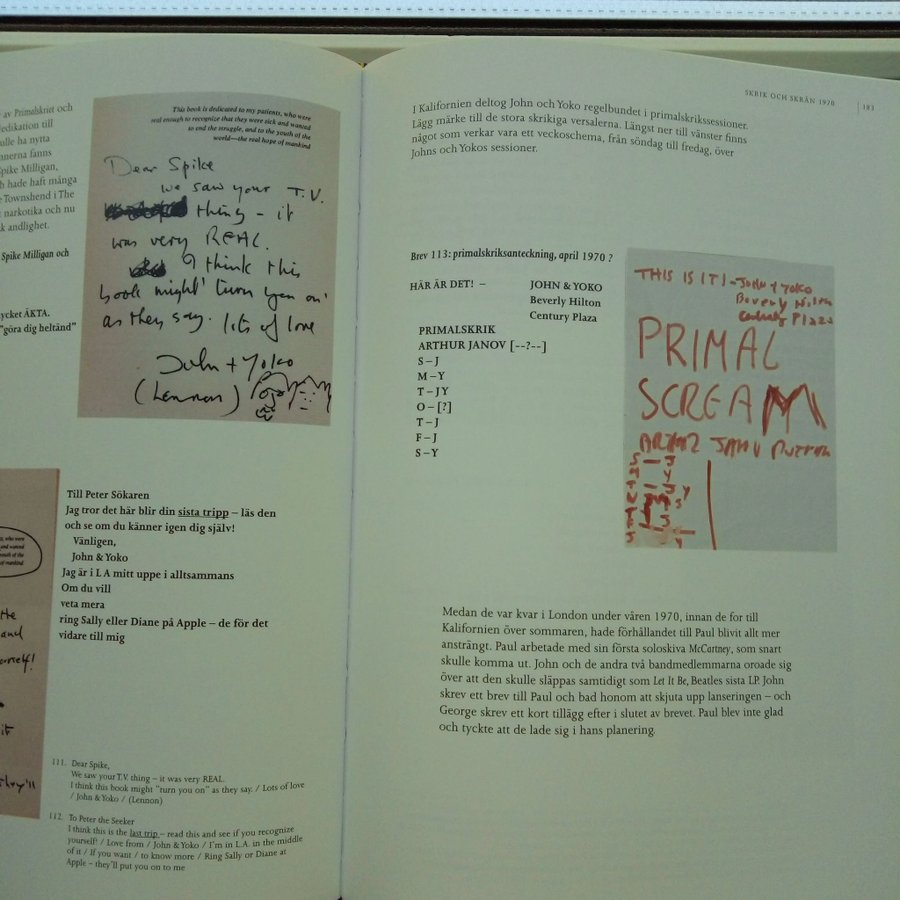 av Primalskriet och
edikation till
ulle ha nytta
nnerna fanns
pike Milligan,
h hade haft många
Townshend i The
t narkotika och nu
k andlighet.
Spike Milligan och
ycket ÄKTA.
"göra dig heltänd"
This book is dedicated to my patients, who were
real enough to recognize that they were sick and wanted
to end the struggle, and to the youth of the
world—the real hope of mankind
Dear Spike
we saw your T.V.
thing – it
was very REAL.
I think this
book might 'turn you on'
as they say. lots of love
John + Yoko
(Lennon)
Till Peter Sökaren
Jag tror det här blir din sista tripp – läs den
och se om du känner igen dig själv!
Vänligen,
John & Yoko
Jag är i L A mitt uppe i alltsammans
Om du vill
veta mera
ring Sally eller Diane på Apple – de för det
vidare till mig
the
and
yourself!
it
they'll
111. Dear Spike,
We saw your T.V. thing – it was very REAL.
I think this book might "turn you on" as they say. / Lots of love
/ John & Yoko / (Lennon)
112. To Peter the Seeker
I think this is the last trip – read this and see if you recognize
yourself! / Love from / John & Yoko / I'm in L.A. in the middle
of it / If you want / to know more / Ring Sally or Diane at
Apple – they'll put you on to me
SKRIK OCH SKRÅN 1970 | 183
I Kalifornien deltog John och Yoko regelbundet i primalskrikssessioner.
Lägg märke till de stora skrikiga versalerna. Längst ner till vänster finns
något som verkar vara ett veckoschema, från söndag till fredag, över
Johns och Yokos sessioner.
Brev 113: primalskriksanteckning, april 1970 ?
HÄR ÄR DET! – JOHN & YOKO
Beverly Hilton
Century Plaza
PRIMALSKRIK
ARTHUR JANOV [--?--]
S – J
M – Y
T – JY
O – [?]
T – J
F – J
S – Y
THIS IS IT! – JOHN + YOKO
Beverly Hilton
Century Plaza
PRIMAL
SCREAM
S – J
M Y
T – J Y
Medan de var kvar i London under våren 1970, innan de for till
Kalifornien över sommaren, hade förhållandet till Paul blivit allt mer
ansträngt. Paul arbetade med sin första soloskiva McCartney, som snart
skulle komma ut. John och de andra två bandmedlemmarna oroade sig
över att den skulle släppas samtidigt som Let It Be, Beatles sista LP. John
skrev ett brev till Paul och bad honom att skjuta upp lanseringen – och
George skrev ett kort tillägg efter i slutet av brevet. Paul blev inte glad
och tyckte att de lade sig i hans planering.